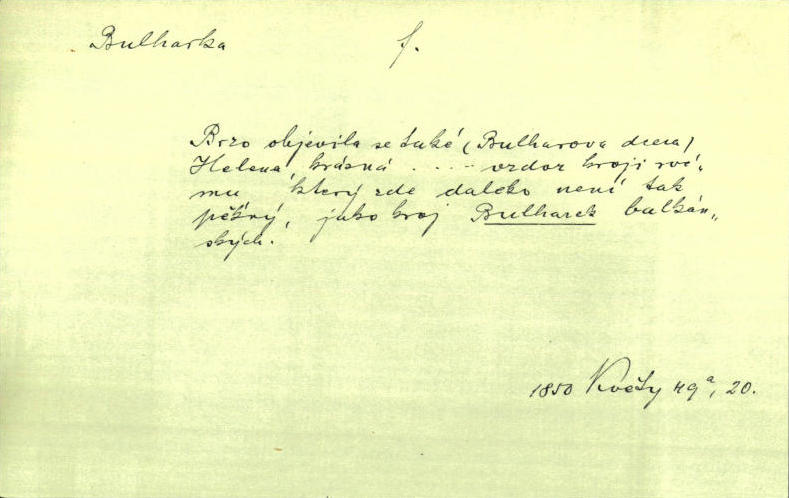 Bulharka f.
Brzo objevila se také (Bulharova dcera)
Helena krásná .... vzdor kroji své„
mu který zde daleko není tak
pěkný, jako kroj Bulharek balkán„
ských.
1850 Květy 49a, 20.